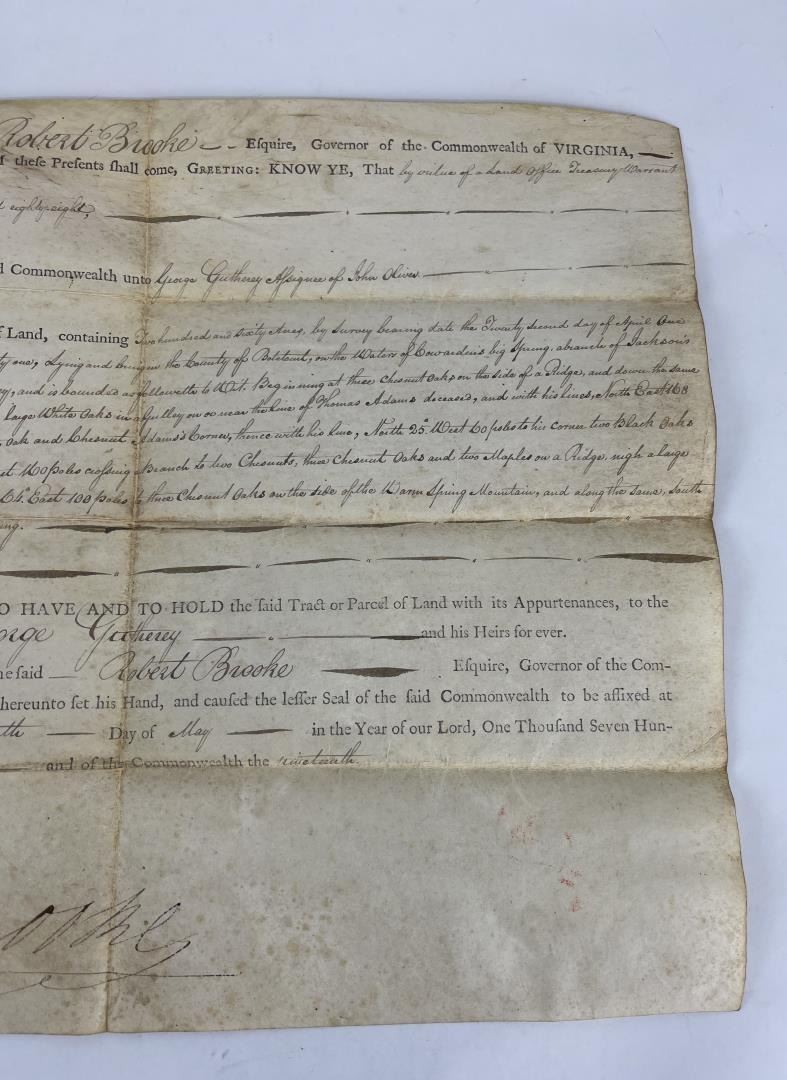 Robert Brooke — Esquire, Governor of the Commonwealth of VIRGINIA,
these Presents shall come, GREETING: KNOW YE, That by virtue of a Land Office Treasury Warrant
eighty eight,
Commonwealth unto George Gutherey Assignee of John Oliver
of Land, containing Two hundred and sixty Acres, by survey bearing date the Twenty second day of April One
ty one, Lying and being in the County of Botetout, on the Waters of Cowarden's big Spring, a branch of Jackson's
and is bounded as followeth to Wit. Beginning at three chesnut Oaks on the side of a Ridge, and down the same
large White Oaks in a Gulley on or near the line of Thomas Adams deceased, and with his lines, North East 168
Oak and Chesnut Adams's Corner, thence with his line, North 25° West 60 poles to his corner two Black Oaks
poles crossing a Branch to two Chesnuts, three Chesnut Oaks and two Maples on a Ridge, nigh a large
64° East 100 poles to three Chesnut Oaks on the side of the Warm Spring Mountain, and along the same, South
ing.
O HAVE AND TO HOLD the said Tract or Parcel of Land with its Appurtenances, to the
orge Gutherey — and his Heirs for ever.
he said — Robert Brooke — Esquire, Governor of the Com-
hereunto set his Hand, and caused the lesser Seal of the said Commonwealth to be affixed at
th — Day of May — in the Year of our Lord, One Thousand Seven Hun-
and of the Commonwealth the nineteenth.
ooke